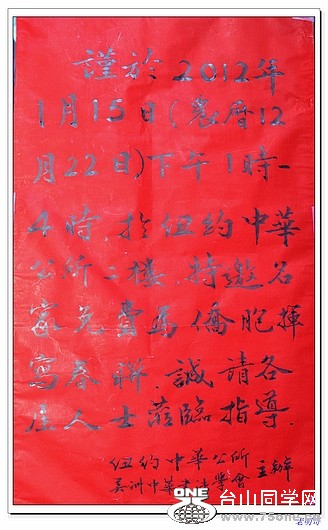 謹於2012年
1月15日(農曆12
月22日)下午1時-
4時,於纽约中華
公所二楼,特邀名
家免费為僑胞揮
寫春聯,誠請各
座人士蒞臨指導.
纽约中華公所
美洲中華书法學會
主辦
ONE
台山同学网
www.75one.co